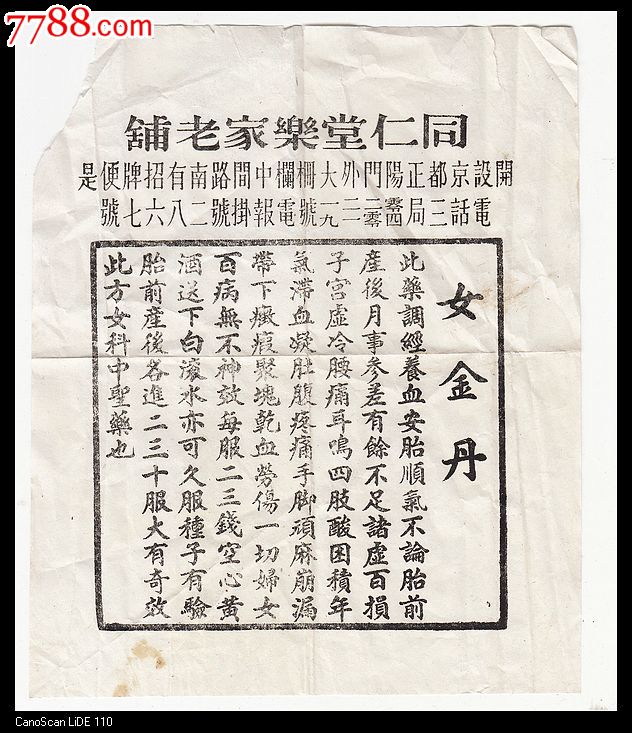 7788.com
中国收藏热线
同仁堂樂家老舖
開設京都正陽門外大柵欄中間路南有招牌便是
電話三局號電報掛號二八六七號
女金丹
此藥調經養血安胎順氣不論胎前
產後月事參差有餘不足諸虛百損
子宮虛冷腰痛耳鳴四肢酸困積年
氣滯血凝肚腹疼痛手脚頑麻崩漏
帶下癥瘕聚塊乾血勞傷一切婦女
百病無不神效每服二三錢空心黃
酒送下白滚水亦可久服種子有驗
胎前產後各進二三十服大有奇效
此方女科中聖藥也
CanoScan LiDE 110